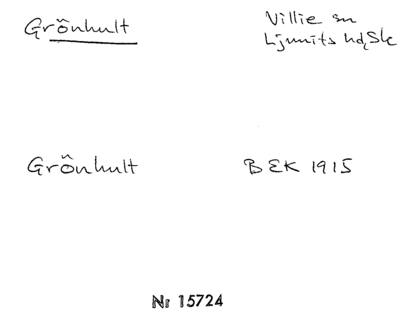 Grönhult
Villie sn
Ljunits hd, Sk
Grönhult
BEK 1915
Nr 15724